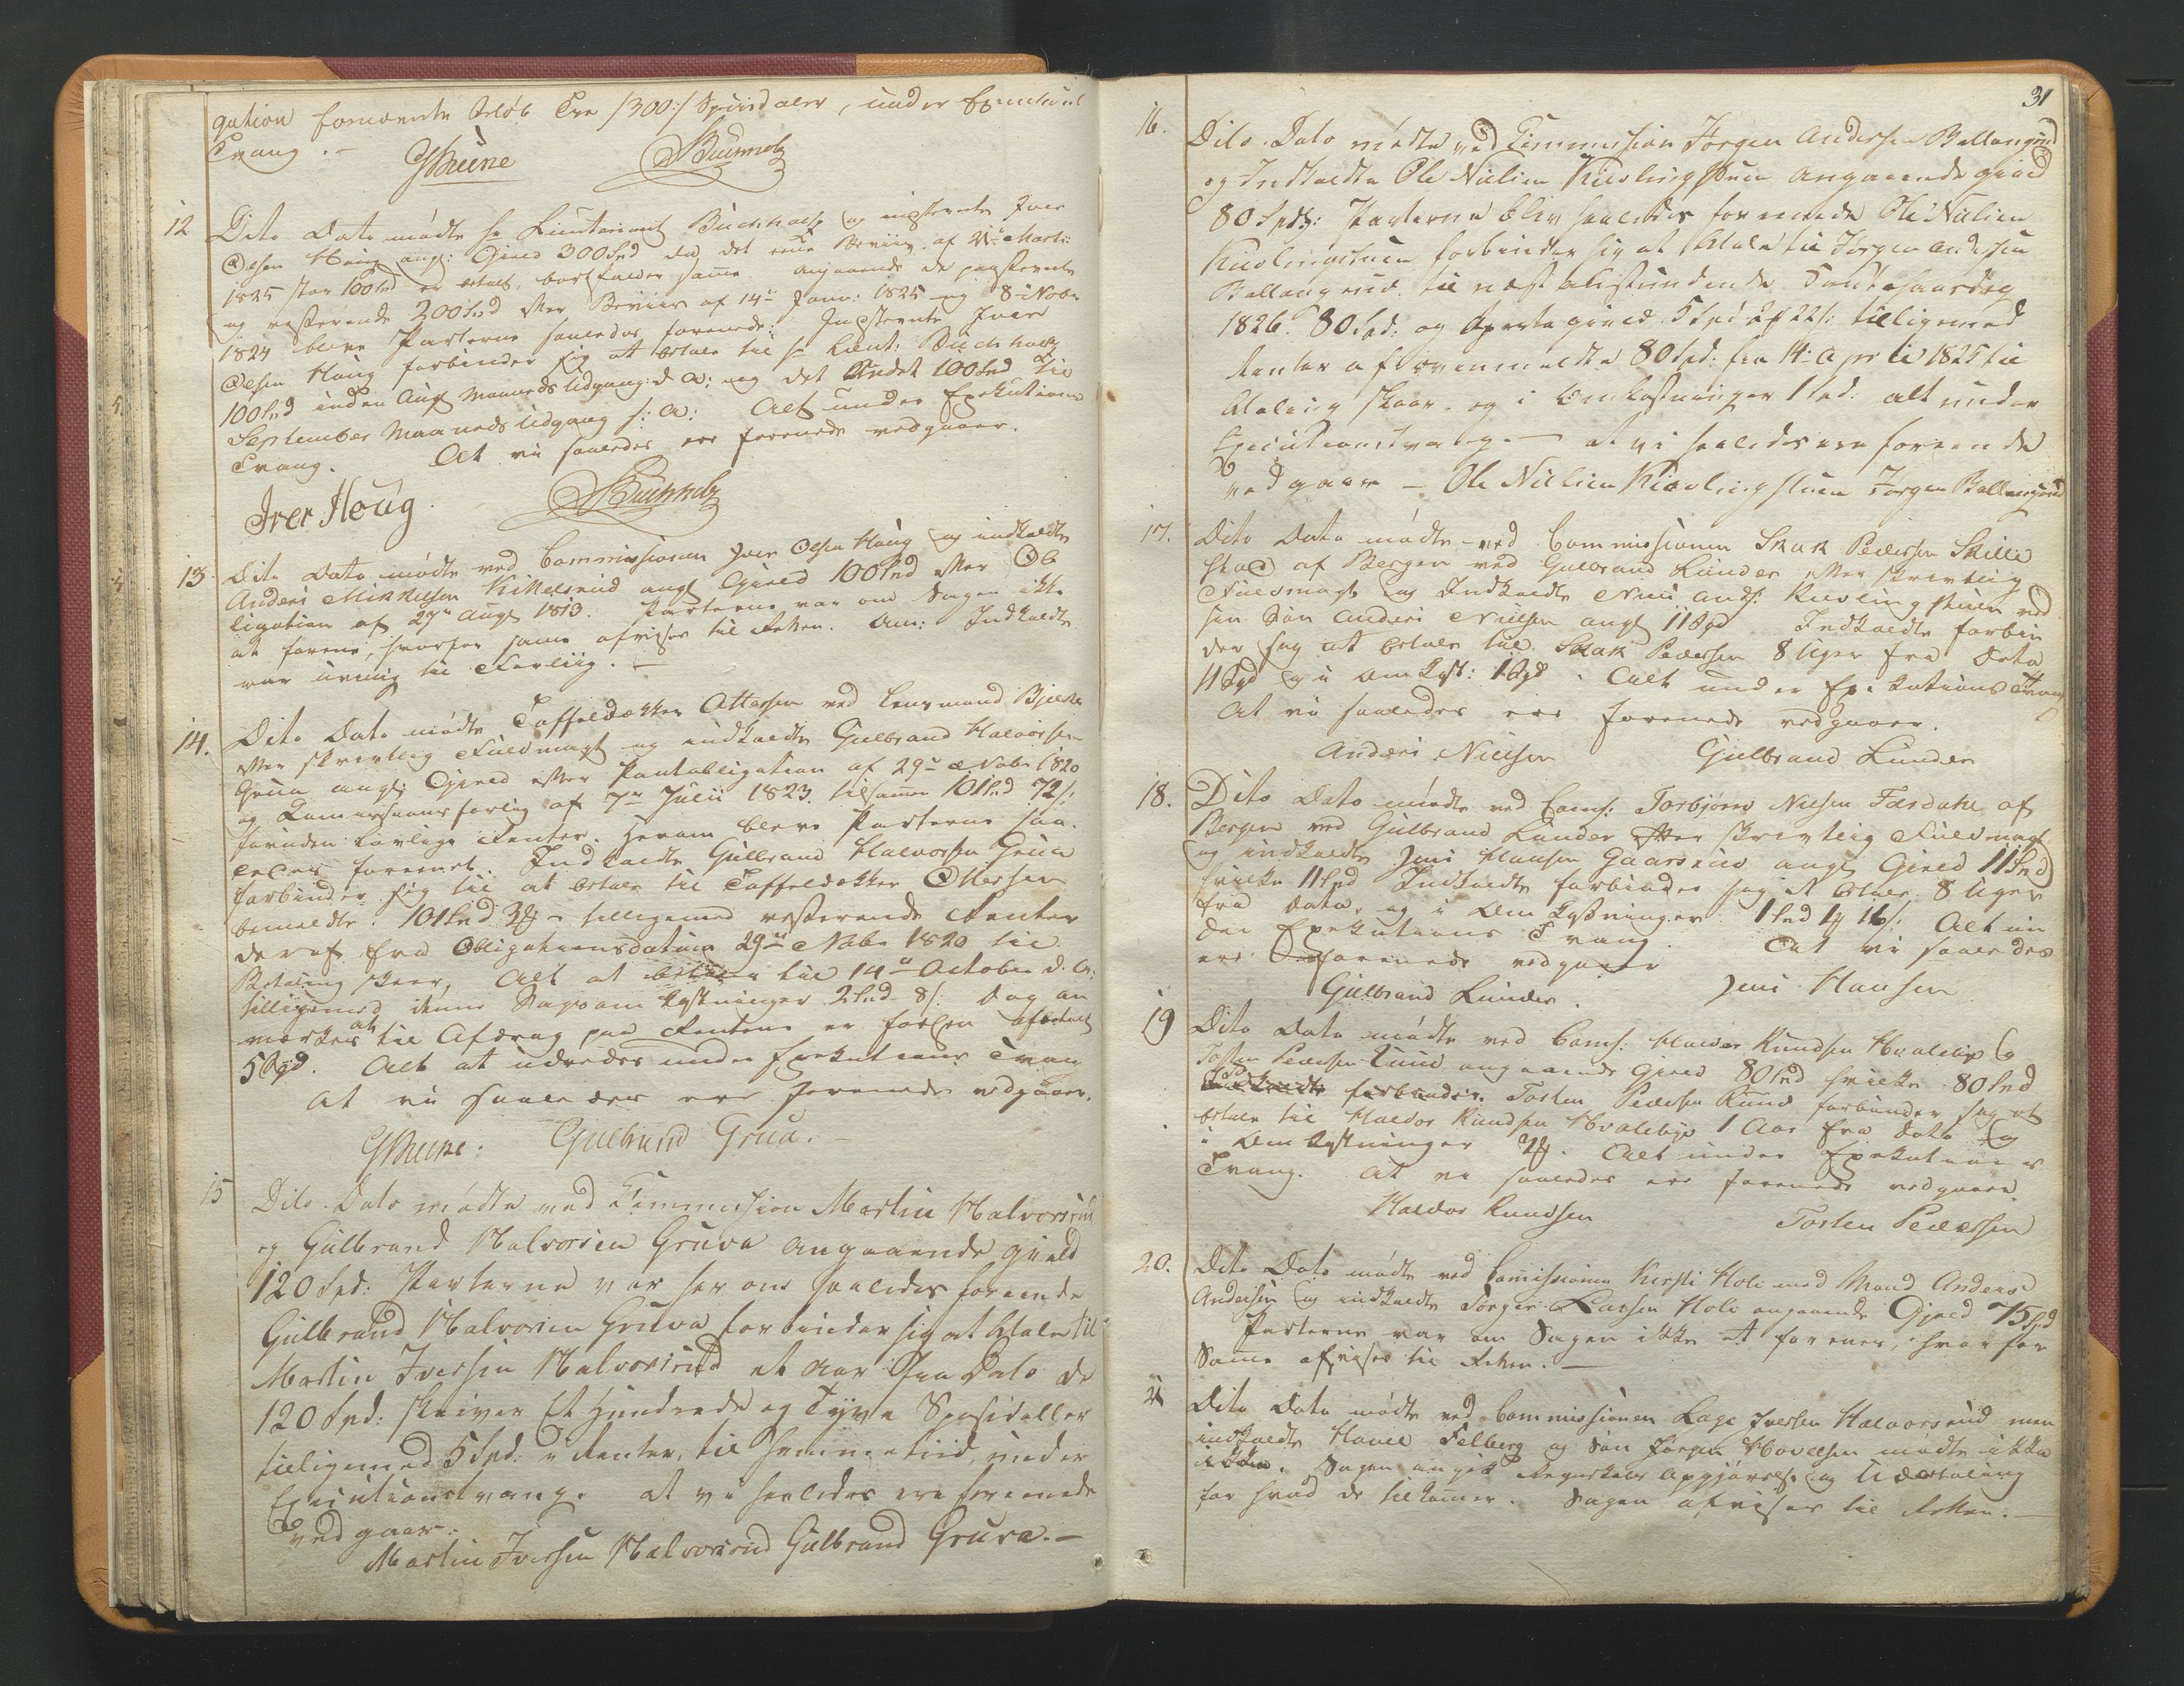 gation fornævnte Beløb Tre /300:/ Speciedaler, under Executions
Tvang. –
GThune Buchholz
12 Dito Dato mødte Hr Lieutenant Buchholtz og indstevnte Iver
Olsen Houg angl: Gield 300 Spd da det ene Beviis af 21de Martii
1825 stor 100 Spd er betalt, bortfalder samme angaaende de paastevnte
og resterende 200 Spd efter Beviis af 14de Janv: 1825 og 8de Nobr
1824 bleve Parterne saaledes forenede: Indstevnte Iver
Olsen Houg forbinder sig at betale til Hr Lieut: Buchholtz
100 Spd inden Augt Maaneds Udgang d: A: og det Andet 100 Spd til
September Maaneds Udgang s: A: Alt under Exekutions
Tvang. At vi saaledes ere forenede vedgaaer.
Iver Houg. Buchholz
13 Dito Dato mødte ved Commissionen Iver Olsen Houg og indkaldte
Anders Mikkelsen Kikkelsrud angl Gield 100 Spd efter Ob
ligation af 27de Augt 1813. Parterne var om Sagen ikke
at forene, hvorfor samme afvises til Retten. Anm: Indkaldte
var uvillig til Forliig. –
14. Dito Dato mødte Taffeldækker Ottersen ved Lensmand Bjerke
efter skrivtlig Fuldmagt og indkaldte Gulbrand Halvorsen
Grua angl: Gield efter Pantobligation af 29de Nobr 1820
og Commissionsforlig af 7de Julii 1823. tilsamen 101 Spd 72 s:
foruden lovlige Renter. Herom bleve Parterne saa-
ledes forenet. Indkaldte Gulbrand Halvorsen Grua
forbinder sig til at betale til Taffeldækker Ottersen
bemeldte 101 Spd 3 # – tilligemed resterende Renter
deraf fra Obligationsdatum 29de Nobr 1820 til
Betaling skeer, Alt at betale til 14de October d. A:
tilligemed denne Sags omkostninger 2 Spd 8 s: Dog an
mærkes at til Afdrag paa Renterne er forhen afbetalt
5 Spd. Alt at udredes under Exekutions Tvang
At vi saaledes ere forenede vedgaaer.
GThune: Gulbrand Grua. –
15 Dito Dato mødte ved Commission Martin Halvorsrud
og Gulbrand Halvorsen Gruva angaaende gield
120 Spd: Parterne var her om saaledes forende
Gulbrand Halvorsen Gruva forbinder sig at betale til
Martin Iversen Halvorsrud et Aar Fra Dato de
120 Spd: skriver Et Hundrede og Tyve Spesidaller
tilligemed 5 Spd: i Renter, til samme tiid, under
Execution tvang. at vi saaledes ere forenede
ved gaar.
Martin Iversen Halvorsrud Gulbrand Gruva. –
31
16. Dito. Dato mødte ved Commission Jørgen Andersen Ballangrud
og Indkaldte Ole Nielsen Kievlingstuen angaaende gield
80 Spd: Parterne blev saaledes forenede Ole Nielsen
Kievlingstuen forbinder sig at betale til Jørgen Andersen
Ballangrud. til næst tilstundende Fantesaardag
1826. 80 Spd: og gield 5 Spd 22 s: tilligemed
Renter af ovenmeldte 80 Spd: fra 14 Aprili 1825 til
Betaling skeer. og i Omkostninger 1 Spd. alt under
Executionstvang. – at vi saaledes ere forende
ved gaar – Ole Nielsen Kievlingstuen Jørgen Ballangrud
17. Dito Dato mødte ved Commissionen Skak Pedersen Skille
stad af Bergen ved Gulbrand Lunder efter skrivtlig
Fuldmagt og Indkaldte Niels Ands: Kievlingstuen ved
sin Søn Anders Nielsen angl 11 Spd Indkaldte forbin
der sig at betale til Skak Pedersen 8 Uger fra Dato
11 Spd og i Omkost: 1 Spd. Alt under Exekutions Tvang
At vi saaledes ere forenede vedgaaer.
Anders Nielsen Gulbrand Lunder
18. Dito Dato mødte ved Coms: Torbjørn Nielsen Fardahl af
Bergen ved Gulbrand Lunder efter skrivtlig Fuldmagt
og indkaldte Jens Hansen Gaarsrud angl Gield 11 Spd
hvilke 11 Spd Indkaldte forbinder sig at betale 8 Uger
fra Dato, og i Omkostninger 1 Spd 1 # 16 s: Alt un
der Exekutions Tvang. At vi saaledes
ere forenede vedgaaer
Gulbrand Lunder. Jens Hansen
19 Dito Dato mødte ved Coms: Haldor Knudsen Hvaleby og
Tosten Pedersen Lund angaaende Gield 80 Spd hvilke 80 Spd
Indkaldte forbinder. Tosten Pedersen Rund forbinder sig at
betale til Haldor Knudsen Hvaleby 1 Aar fra Dato og
i Omkostninger 2 #. Alt under Exekutions
Tvang. At vi saaledes ere forenede vedgaaer.
Haldor Knudsen Tosten Pedersen
20. Dito Dato mødte ved Comissionen Kirsti Hole med Mand Anders
Andersen og indkaldte Jørger Larsen Hole angaaende Gjeld 75 Spd
Parterne var om Sagen ikke at forenes, hvorfor
Same afvises til Retten. –
21 Dito Dato mødte ved Commissionen Lage Iversen Halvorsrud men
indkaldte Hovel Felberg og Søn Jørgen Hovelsen mødte ikke
ikke. Sagen angik Regnskabs opgjørelse og Udbetaling
for hvad de tilkommer. Sagen afvises til Retten. –